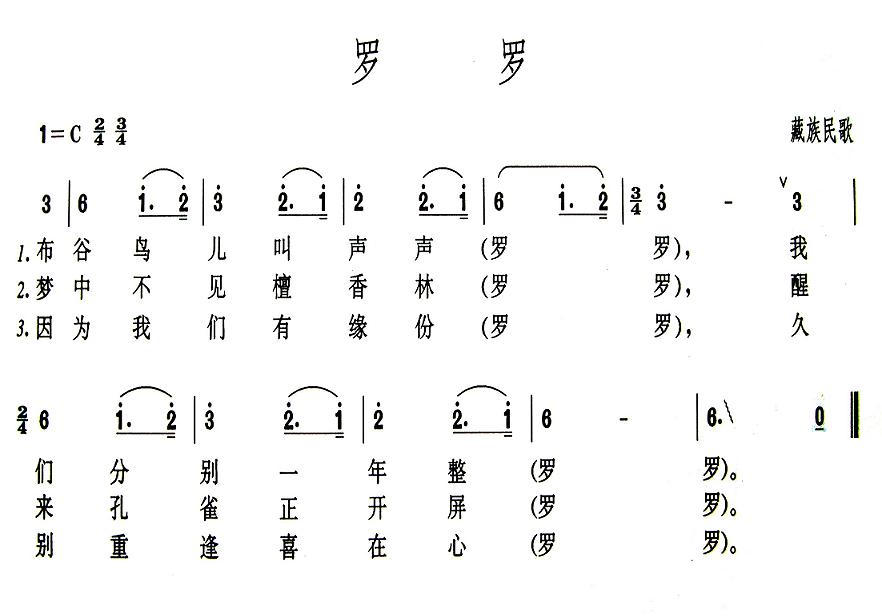 罗 罗
1=C 2/4 3/4 藏族民歌
3 | 6 1̇. 2̇ | 3̇ 2̇. 1̇ | 2̇ 2̇. 1̇ | 6 1̇. 2̇ | 3/4 3̇ - ∨ 3 |
1. 布 谷 鸟 儿 叫 声 声 (罗 罗), 我
2. 梦 中 不 见 檀 香 林 (罗 罗), 醒
3. 因 为 我 们 有 缘 份 (罗 罗), 久
2/4 6 1̇. 2̇ | 3̇ 2̇. 1̇ | 2̇ 2̇. 1̇ | 6 - | 6. \ 0 ‖
们 分 别 一 年 整 (罗 罗)。
来 孔 雀 正 开 屏 (罗 罗)。
别 重 逢 喜 在 心 (罗 罗)。